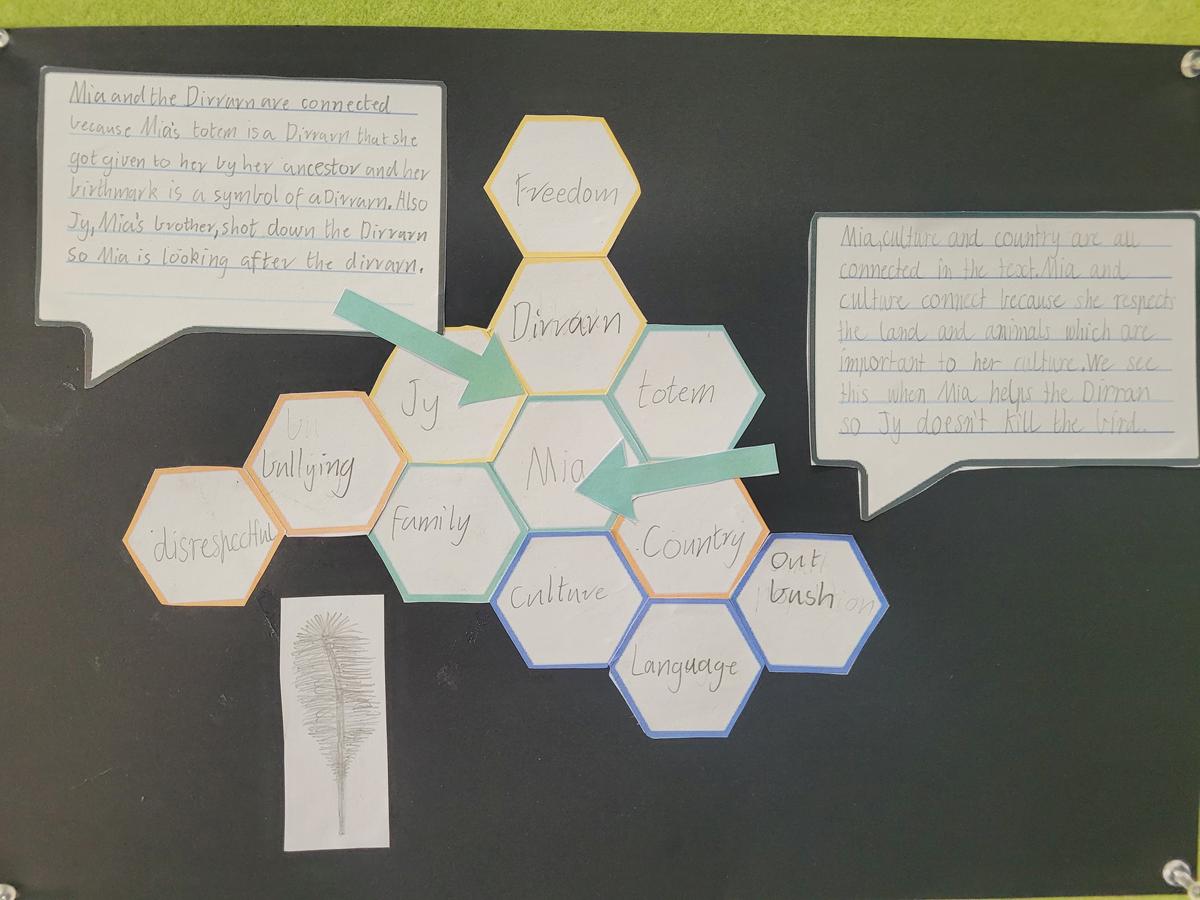 Mia and the Dirrarn are connected
because Mia's totem is a Dirrarn that she
got given to her by her ancestor and her
birthmark is a symbol of a Dirrarn. Also
Jy, Mia's brother, shot down the Dirrarn
so Mia is looking after the dirrarn.
Freedom
Mia, culture and country are all
connected in the text. Mia and
culture connect because she respects
the land and animals which are
important to her culture. We see
this when Mia helps the Dirran
so Jy doesn't kill the bird.
Dirrarn
Jy
totem
bullying
Mia
disrespectful
Family
Country
Culture
Out
bush
Language